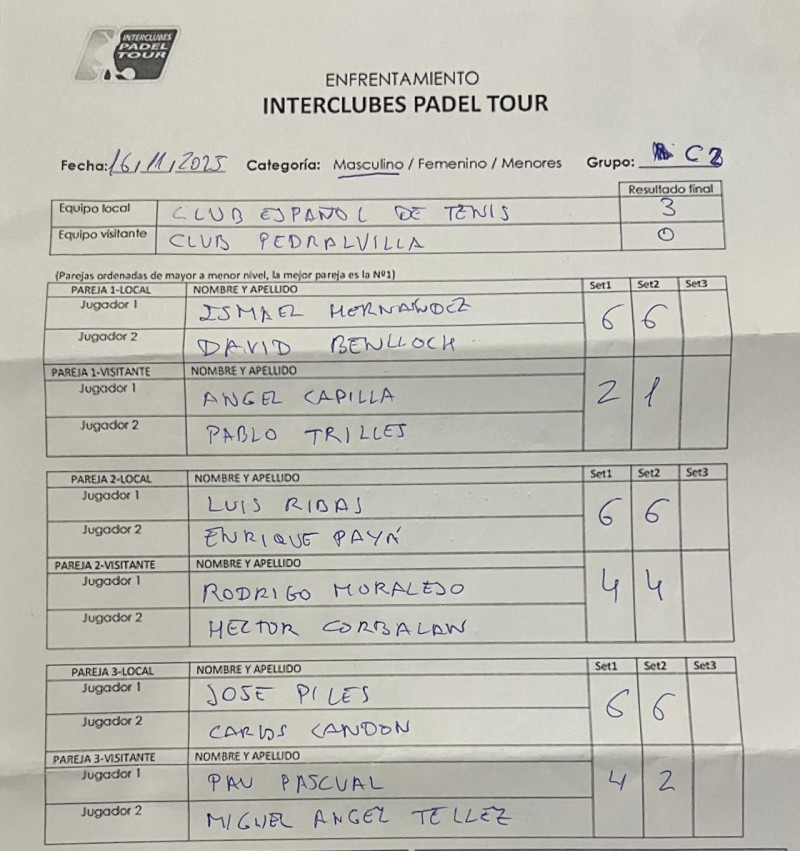 INTERCLUBES
PADEL
TOUR
ENFRENTAMIENTO
INTERCLUBES PADEL TOUR
Fecha: 16/11/2025 Categoría: Masculino / Femenino / Menores Grupo: C2
Resultado final
Equipo local CLUB ESPAÑOL DE TENIS 3
Equipo visitante CLUB PEDRALVILLA 0
(Parejas ordenadas de mayor a menor nivel, la mejor pareja es la Nº1)
PAREJA 1-LOCAL NOMBRE Y APELLIDO Set1 Set2 Set3
Jugador 1 ISMAEL HERNANDEZ 6 6
Jugador 2 DAVID BENLLOCH
PAREJA 1-VISITANTE NOMBRE Y APELLIDO
Jugador 1 ANGEL CAPILLA 2 1
Jugador 2 PABLO TRILLES
PAREJA 2-LOCAL NOMBRE Y APELLIDO Set1 Set2 Set3
Jugador 1 LUIS RIBAS 6 6
Jugador 2 ENRIQUE PAYÁ
PAREJA 2-VISITANTE NOMBRE Y APELLIDO
Jugador 1 RODRIGO MORALEJO 4 4
Jugador 2 HECTOR CORBALAN
PAREJA 3-LOCAL NOMBRE Y APELLIDO Set1 Set2 Set3
Jugador 1 JOSE PILES 6 6
Jugador 2 CARLOS CANDON
PAREJA 3-VISITANTE NOMBRE Y APELLIDO
Jugador 1 PAU PASCUAL 4 2
Jugador 2 MIGUEL ANGEL TELLEZ